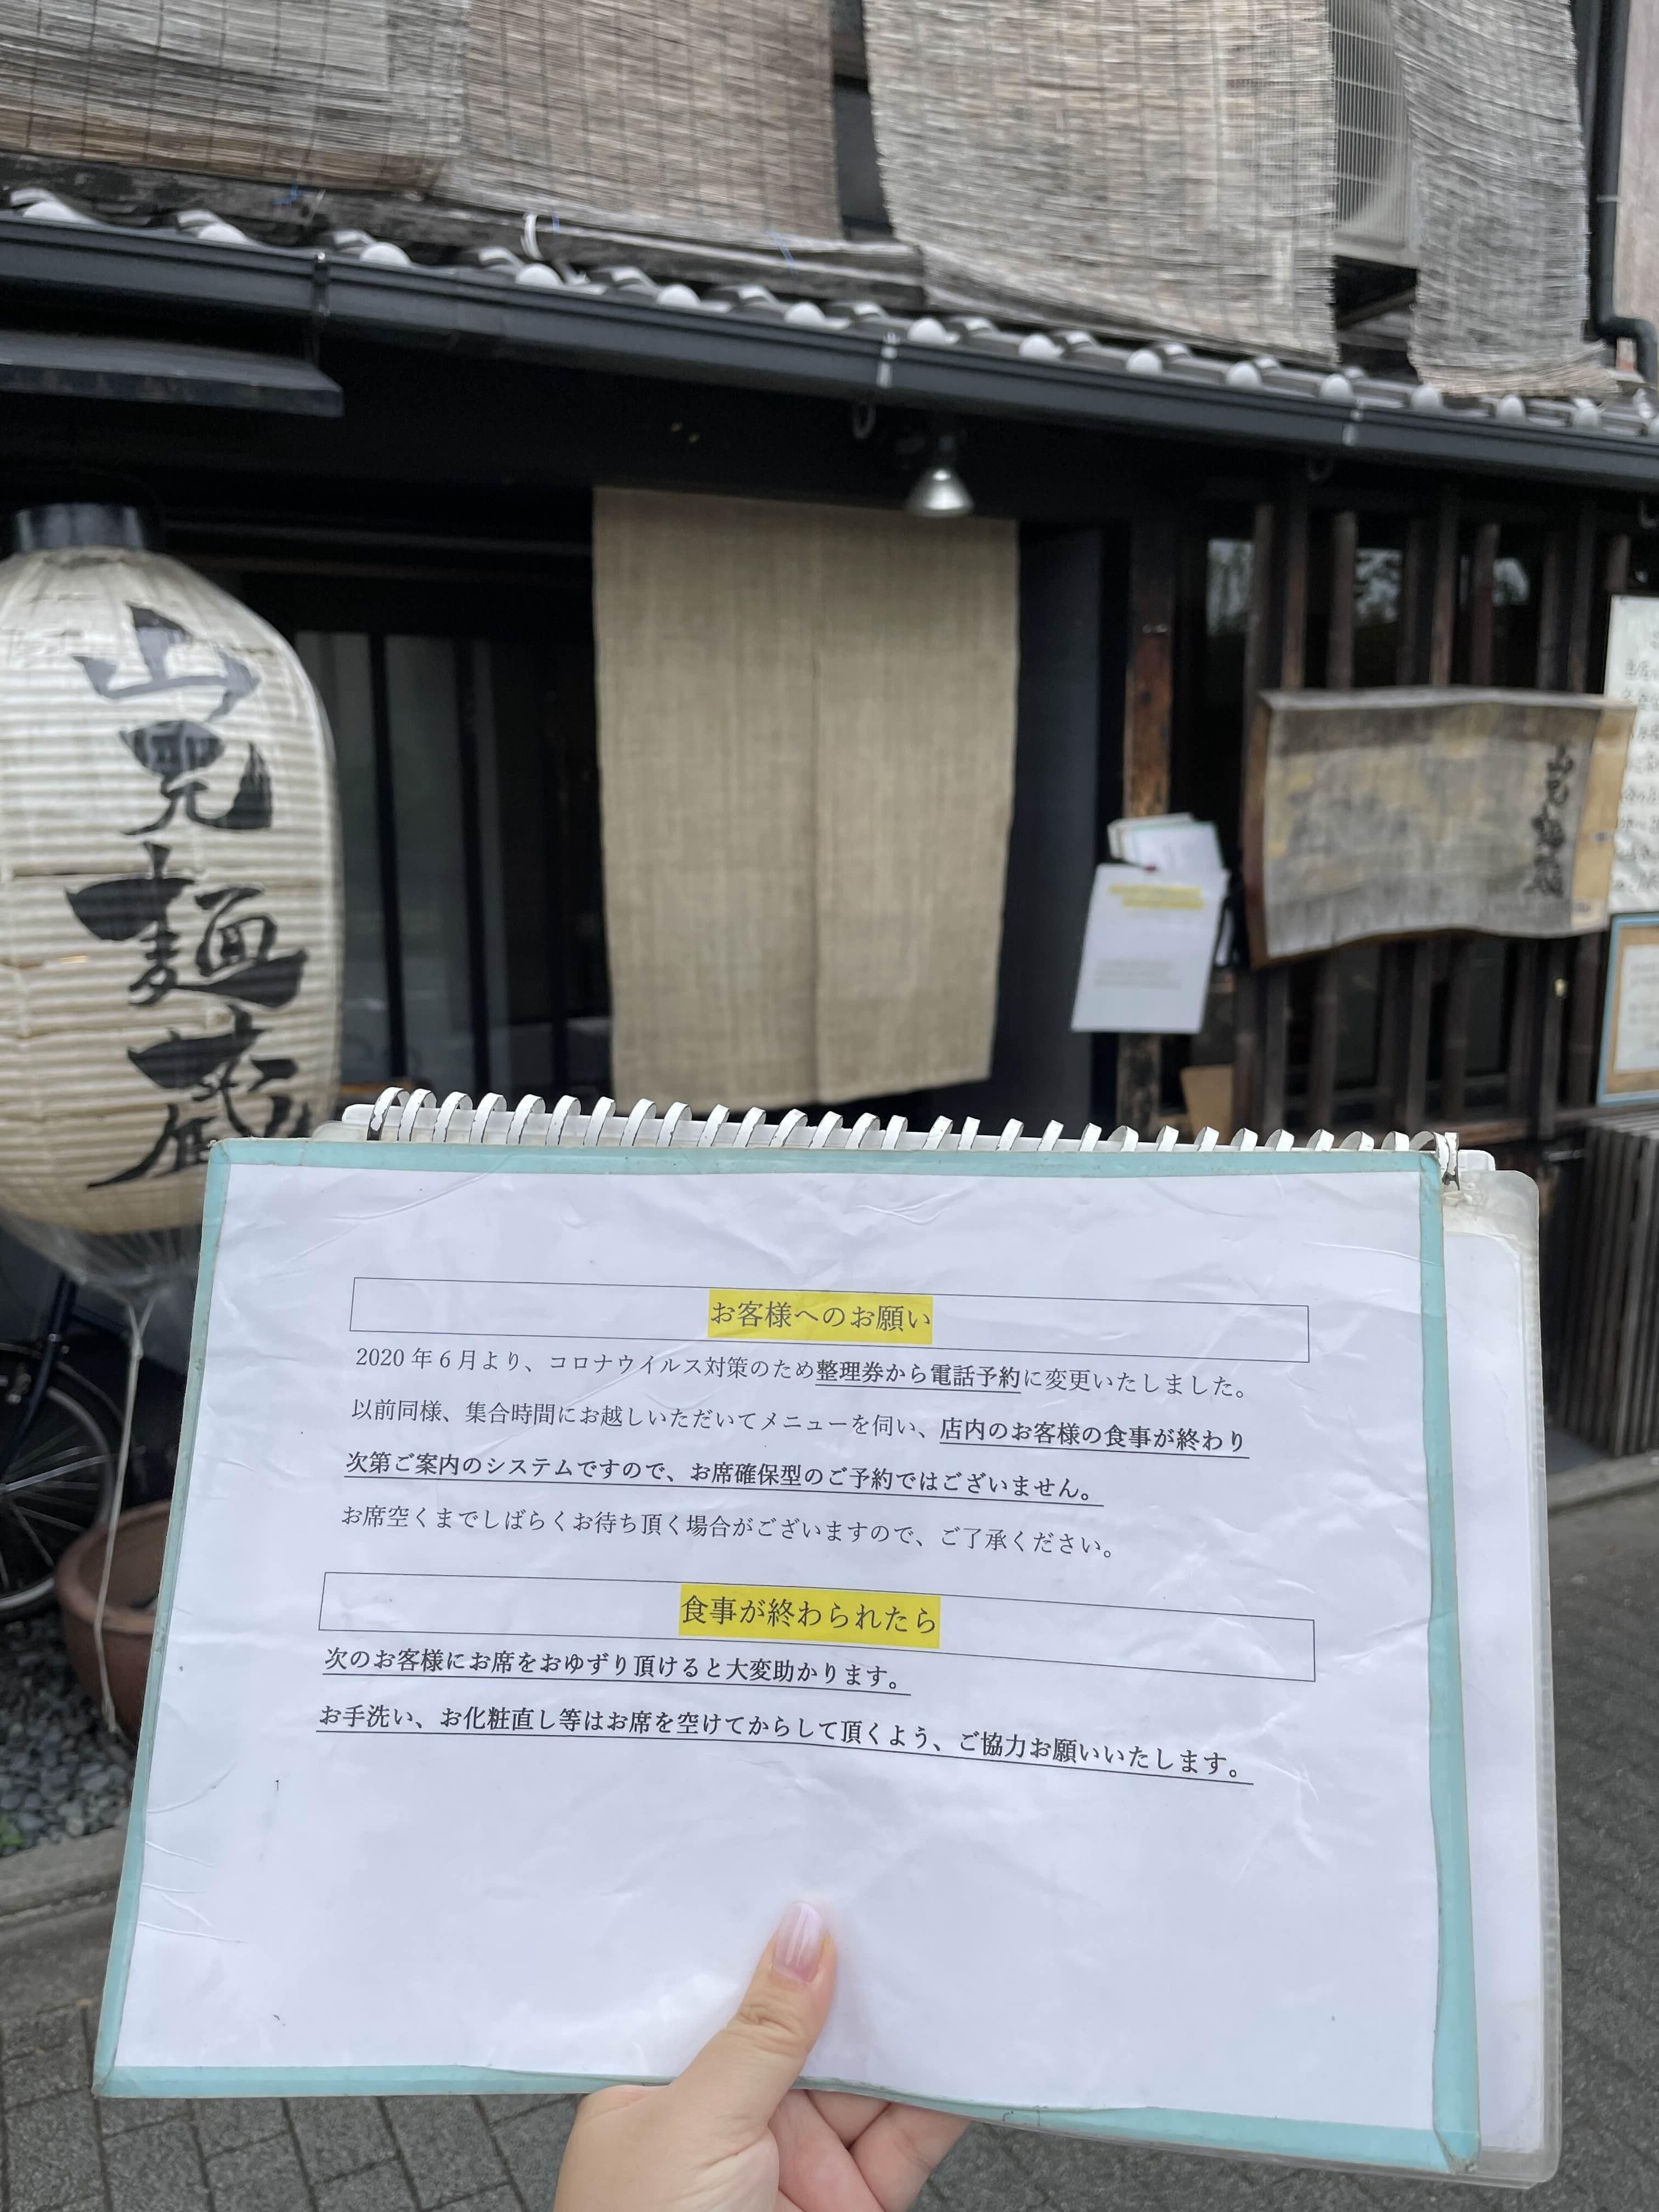 山元麺蔵
お客様へのお願い
2020年6月より、コロナウイルス対策のため整理券から電話予約に変更いたしました。
以前同様、集合時間にお越しいただいてメニューを伺い、店内のお客様の食事が終わり
次第ご案内のシステムですので、お席確保型のご予約ではございません。
お席空くまでしばらくお待ち頂く場合がございますので、ご了承ください。
食事が終わられたら
次のお客様にお席をおゆずり頂けると大変助かります。
お手洗い、お化粧直し等はお席を空けてからして頂くよう、ご協力お願いいたします。